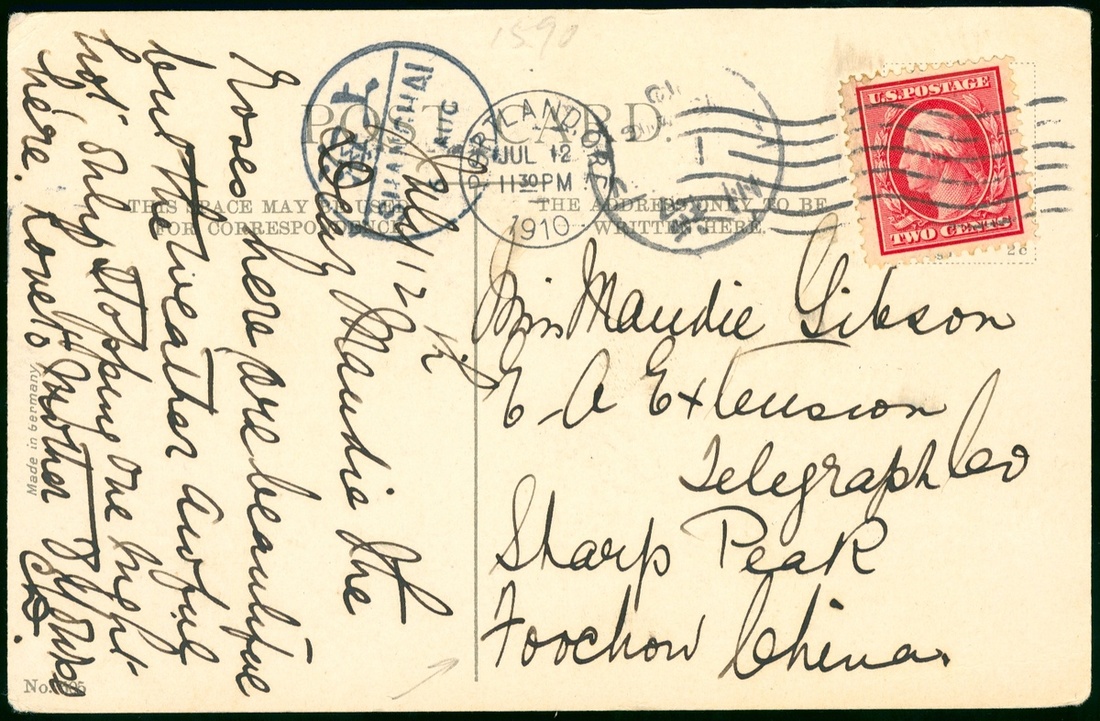 1590
POST CARD.
THIS SPACE MAY BE USED
FOR CORRESPONDENCE
THE ADDRESS ONLY TO BE
WRITTEN HERE.
SHANGHAI
PORTLAND, ORE.
JUL 12
11 30 PM
1910
U.S. POSTAGE
TWO CENTS
2c
July 12th
Maudie the
Roses here are beautiful
but the weather awful
hot Only Stopping one night
here. Love to Mother
Miss Maudie Gibson
E-A Extension
Telegraph Co
Sharp Peak
Foochow China.
Made in Germany
No.